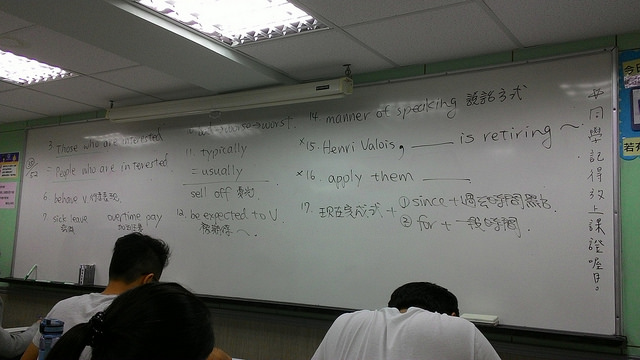 3. Those who are interested
= People who are interested
6. behave V.
7. sick leave overtime pay
worse → worst.
11. typically
= usually
sell off
12. be expected to V.
14. manner of speaking 說話方式
*15. Henri Valois, ____ is retiring ~
*16. apply them ____
17. 現在完成式 + ① since + 過去時間點.
② for + 一段時間.
同學記得放上課證喔!
今日